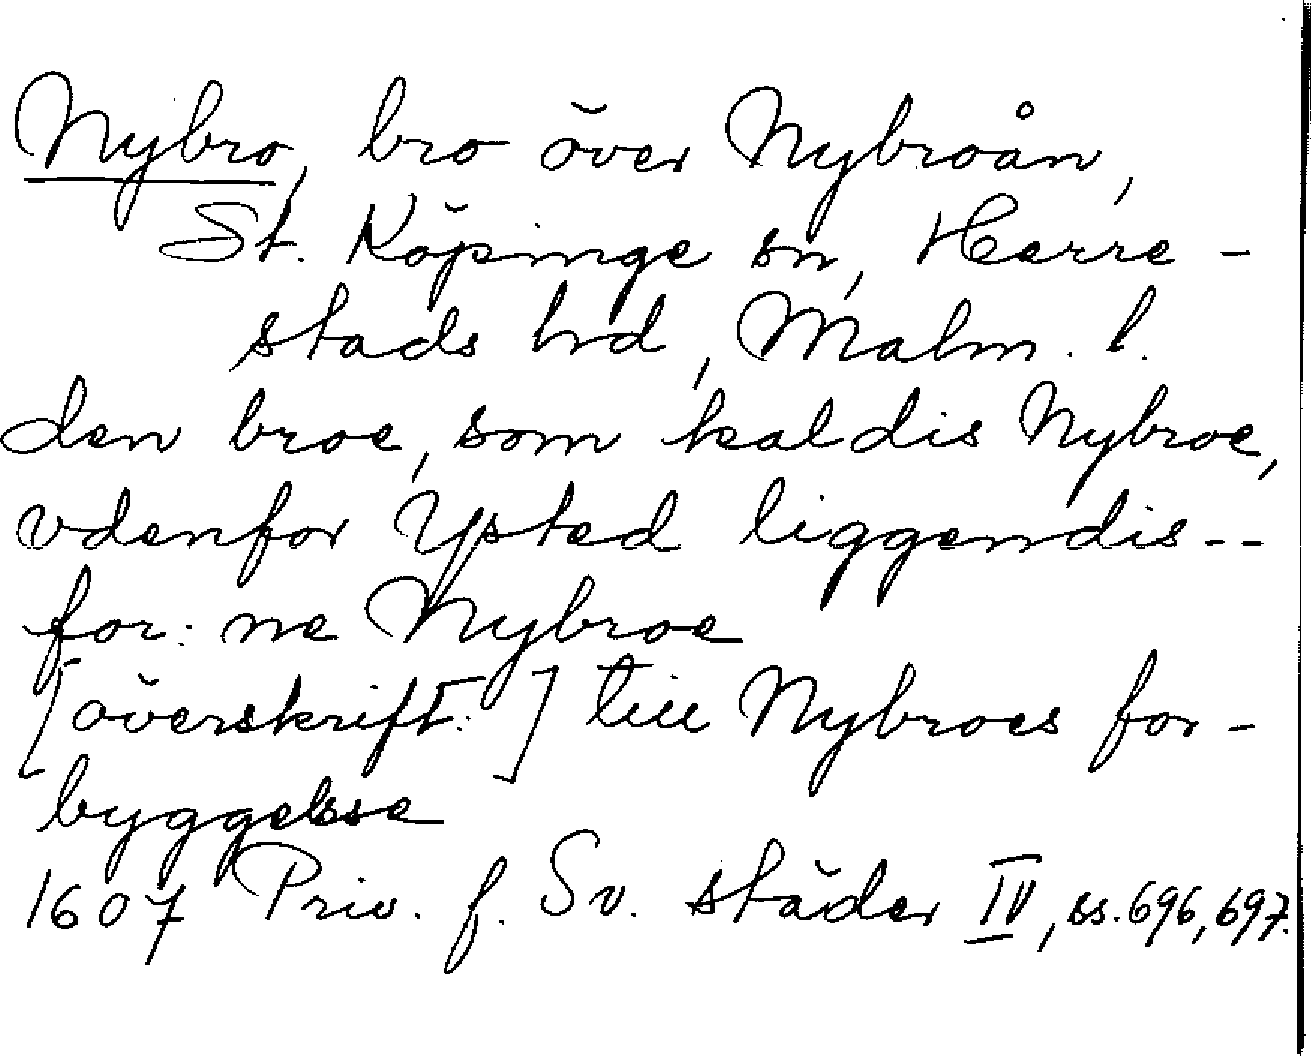 Nybro, bro över Nybroån,
St. Köpinge sn, Herre-
stads hrd, Malm. l.
den broe, som kaldis Nybroe,
vdenfor Ysted liggendis--
for: ne Nybroe
[överskrift:] till Nybroes for-
byggelsse
1607 Priv. f. Sv. städer IV, ss. 696, 697.